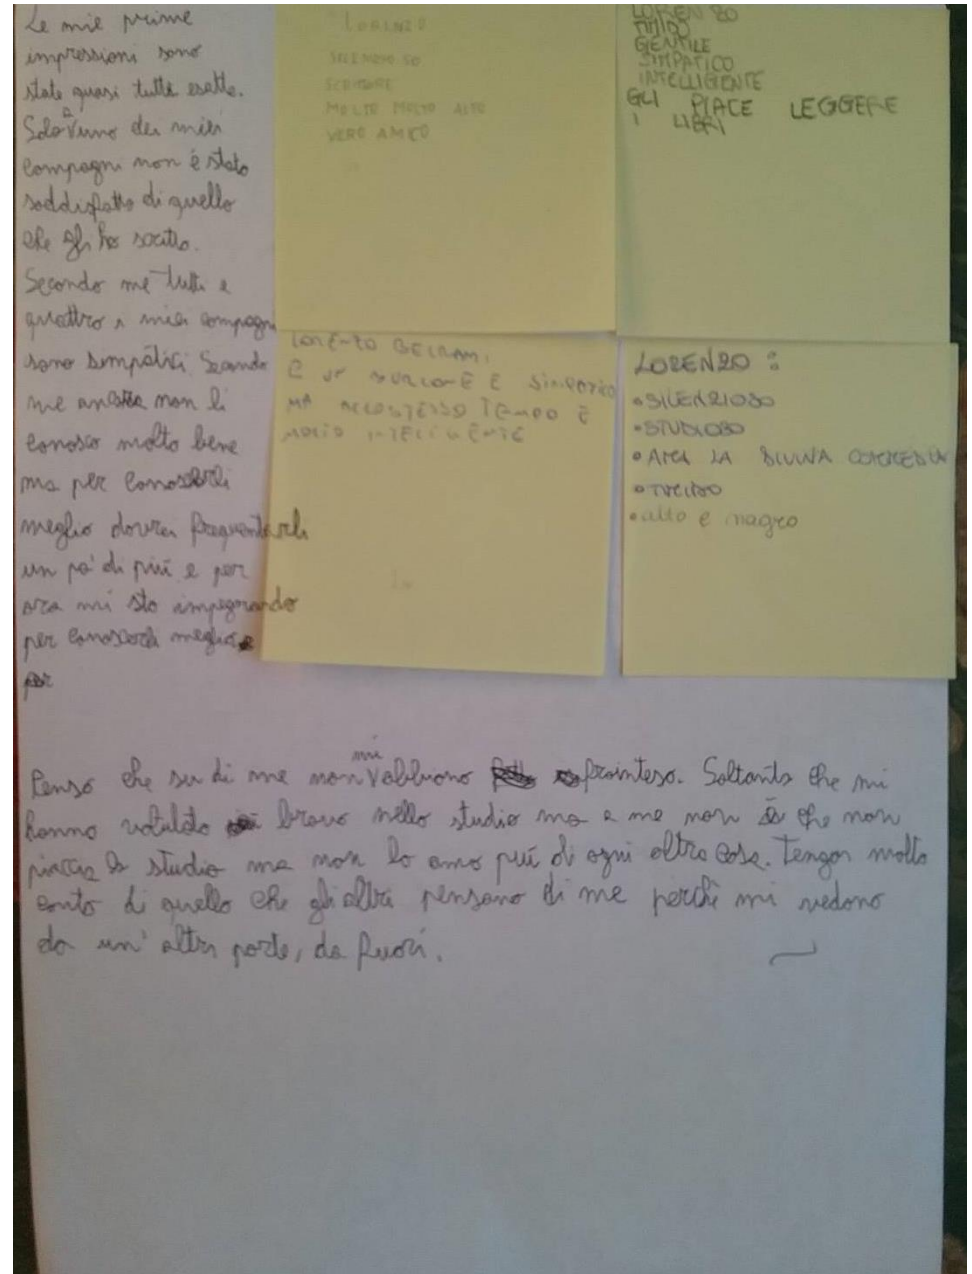 Le mie prime
impressioni sono
state quasi tutte esatte.
Solo a uno dei miei
compagni non é stato
soddisfatto di quello
che gli ho scritto.
Secondo me tutti e
quattro i miei compagni
sono simpatici Secondo
me ancora non li
conosco molto bene
ma per conoscerli
meglio dovrei frequentarli
un po' di piú e per
ora mi sto impegnando
per conoscerli meglio
LORENZO
SILENZIOSO
SCRITTORE
MOLTO MOLTO ALTO
VERO AMICO
LORENZO
TIMIDO
GENTILE
SIMPATICO
INTELLIGENTE
GLI PIACE LEGGERE
I LIBRI
LORENZO
È UN BURLONE E SIMPATICO
MA ALLO STESSO TEMPO È
MOLTO INTELIGENTE
LORENZO:
•SILENZIOSO
•STUDIOSO
•AMA LA DIVINA COMMEDIA
•TIMIDO
•alto e magro
Penso che su di me non mi abbiano frainteso. Soltanto che mi
hanno valutato bravo nello studio ma a me non è che non
piaccia lo studio ma non lo amo piú di ogni altra cosa. Tengon molto
conto di quello che gli altri pensano di me perchè mi vedono
da un'altra parte, da fuori.